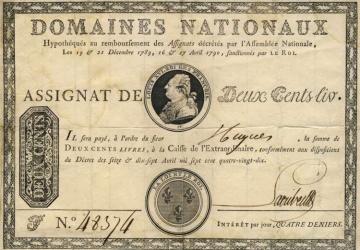 DOMAINES NATIONAUX
Hypothéqués au remboursement des Assignats décrétés par l'Assemblée Nationale,
Les 19 & 21 Décembre 1789, 16 & 17 Avril 1790, sanctionnés par LE ROI.
ASSIGNAT DE Deux Cents liv.
IL sera payé, à l'ordre du sieur Hugues la somme de
DEUX CENTS LIVRES, à la Caisse de l'Extraordinaire, conformément aux dispositions
du Décret des seize & dix-sept Avril mil sept cent quatre-vingt-dix.
DEUX CENTS
LA LOI ET LE ROI
N.° 48374
INTÉRÊT par jour, QUATRE DENIERS.